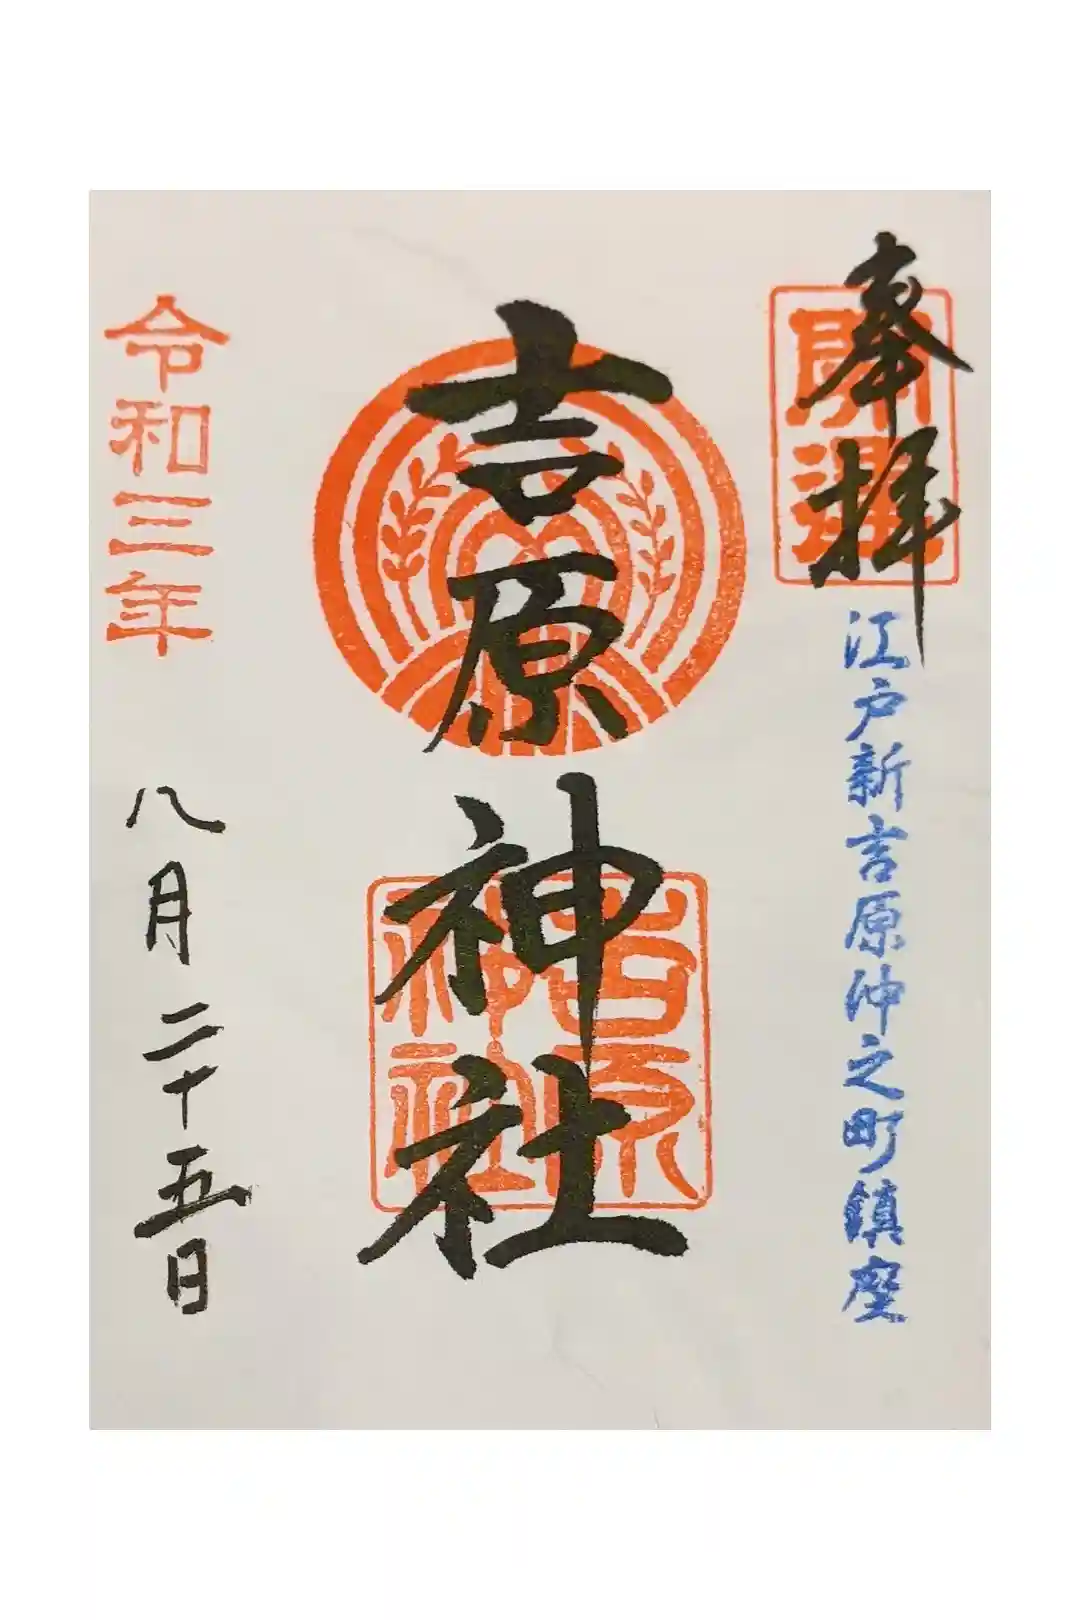 奉拝
開運
江戸新吉原仲之町鎮座
吉原神社
吉原神社
令和三年
八月二十五日